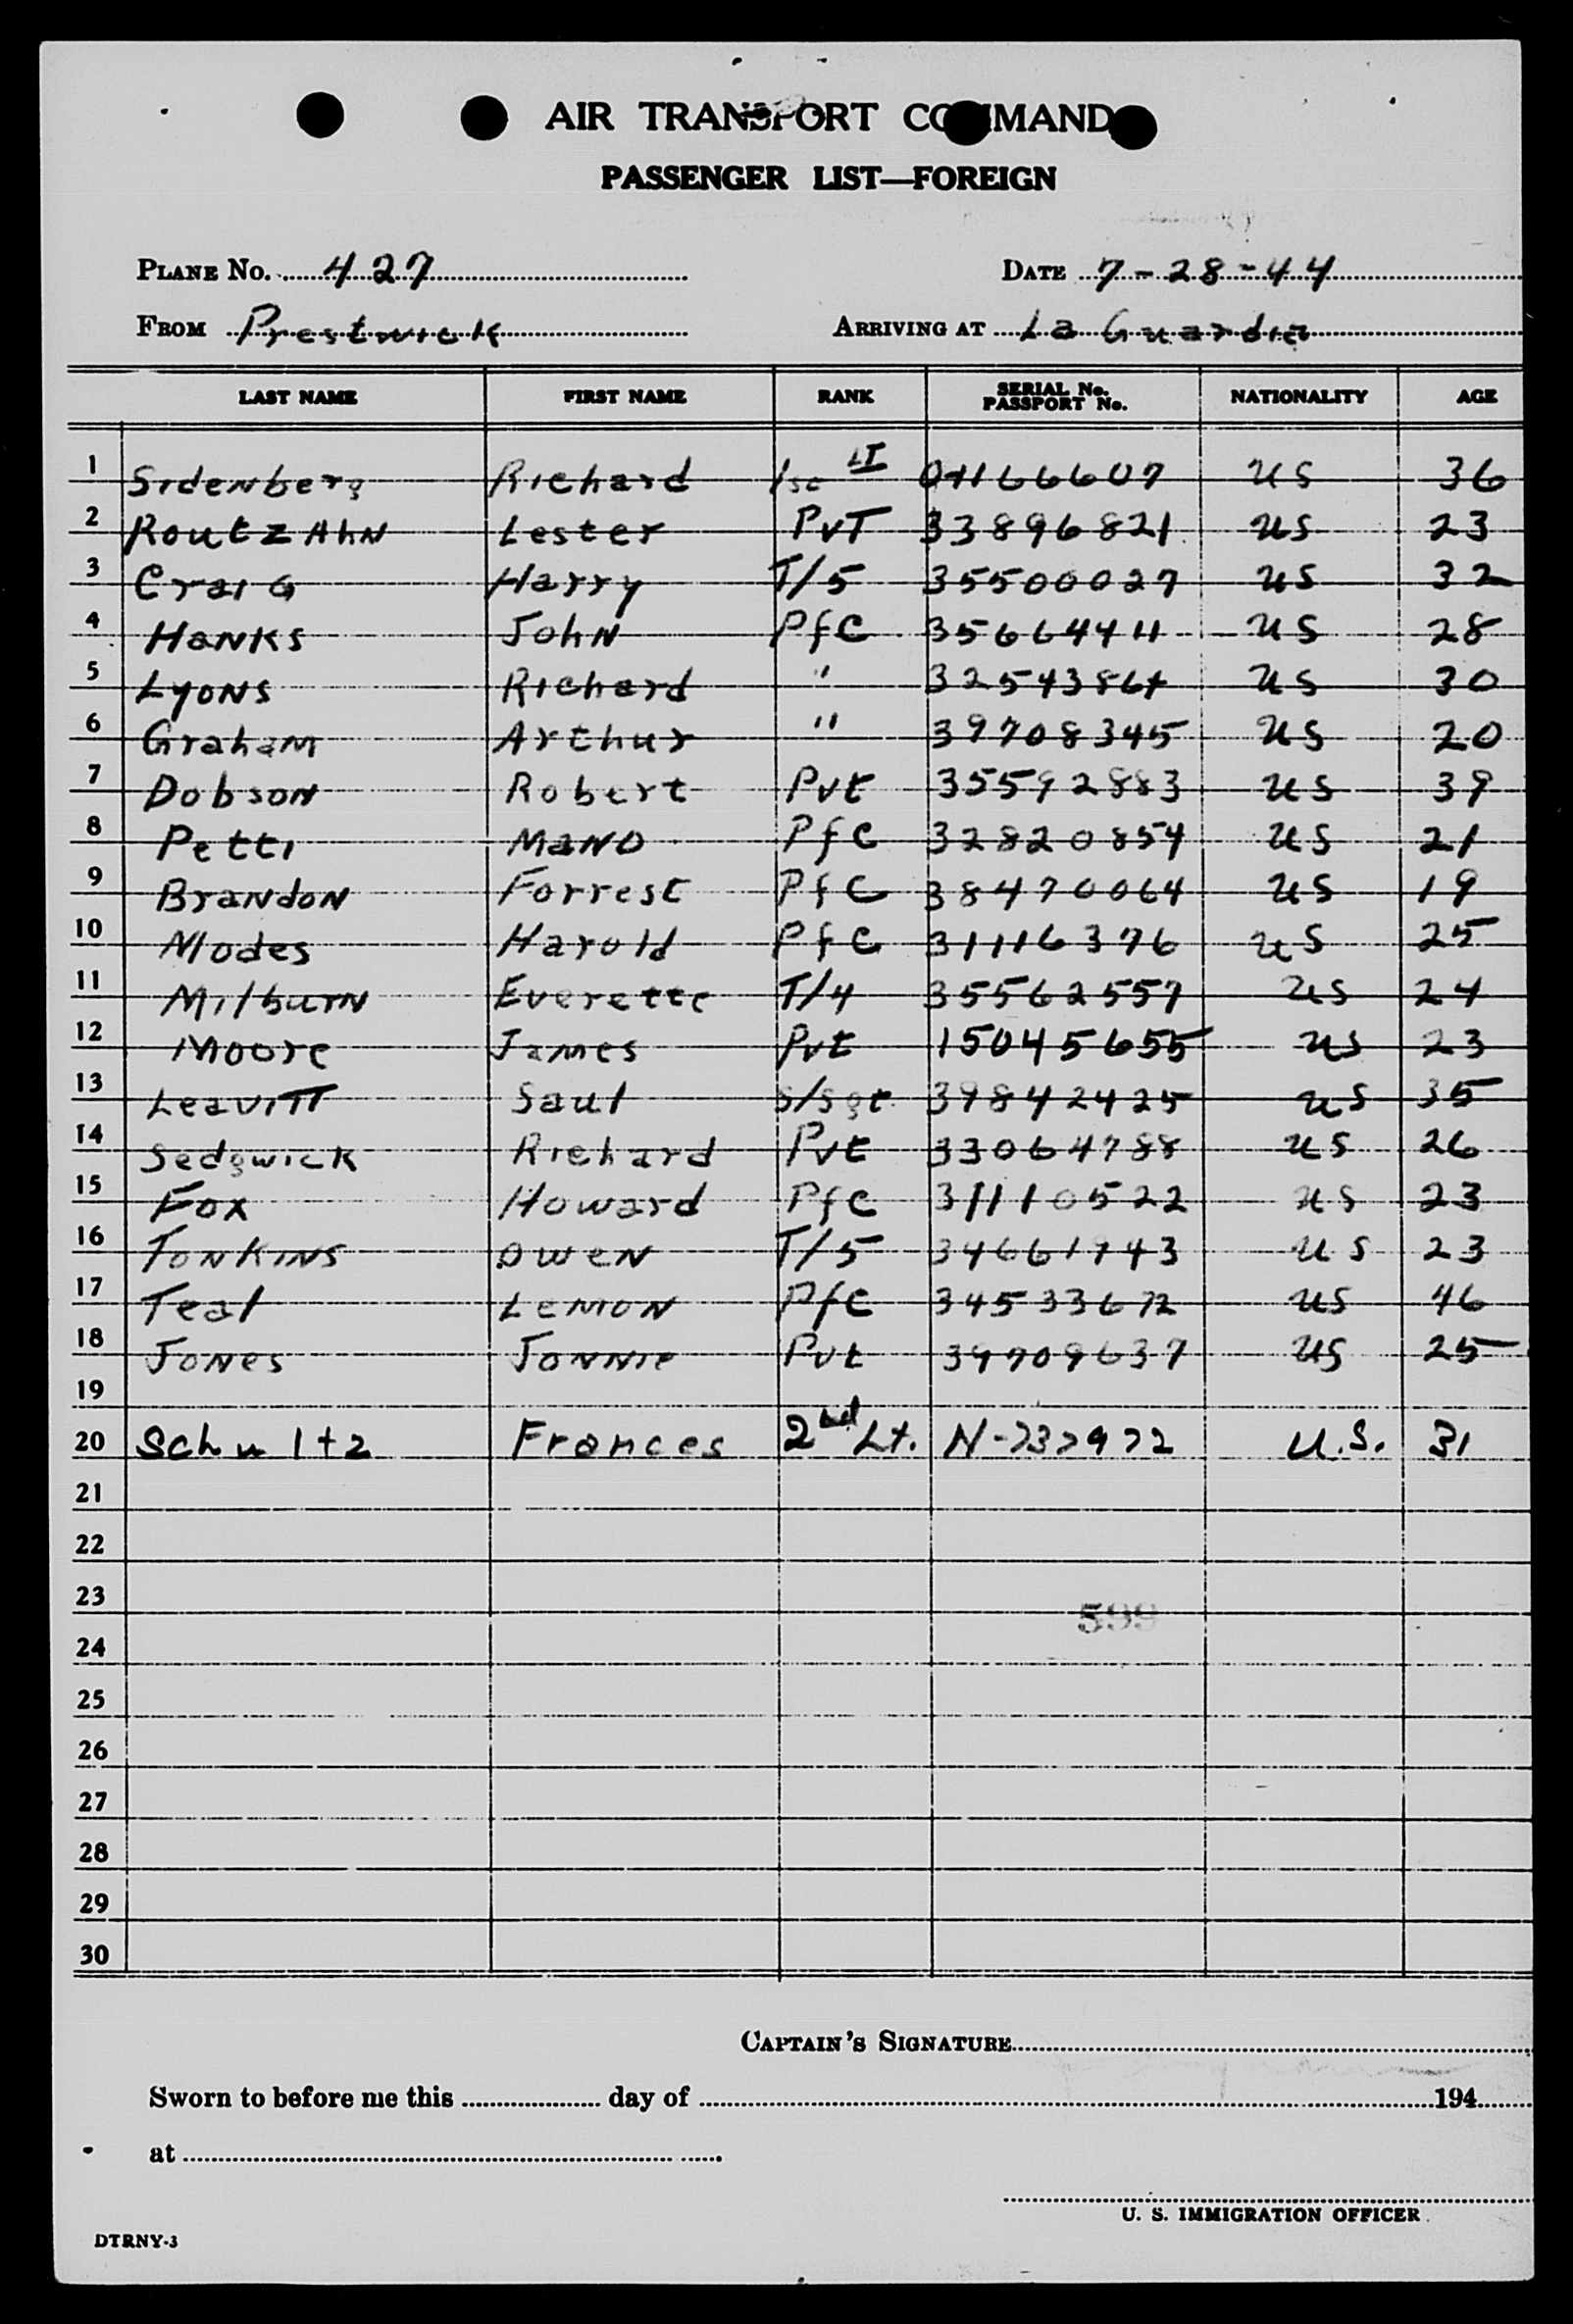 AIR TRANSPORT COMMAND
PASSENGER LIST—FOREIGN
PLANE No. 427 DATE 7-28-44
FROM Prestwick ARRIVING AT La Guardia
LAST NAME FIRST NAME RANK SERIAL No. PASSPORT No. NATIONALITY AGE
1 Sidenberg Richard 1st LT 01166607 US 36
2 RoutzAhN Lester PvT 33896821 US 23
3 CraiG Harry T/5 35500027 US 32
4 HaNKS JohN PfC 35664411 US 28
5 LyoNS Richard " 32543864 US 30
6 GrahaM Arthur " 39708345 US 20
7 DobsoN Robert Pvt 35592883 US 39
8 Petti MaNO PfC 32820854 US 21
9 BraNdoN Forrest PfC 38470064 US 19
10 Modes Harold PfC 31116376 US 25
11 MilburN Everette T/4 35562557 US 24
12 Moore James Pvt 15045655 US 23
13 LeaviTT Saul S/Sgt 39842425 US 35
14 Sedgwick Richard Pvt 33064788 US 26
15 Fox Howard PfC 31110522 US 23
16 ToNKiNS OweN T/5 34661943 US 23
17 Teal LeMoN PfC 34533672 US 46
18 JoNes JoNNie Pvt 39709637 US 25
19
20 Schultz Frances 2nd Lt. N-732972 U.S. 31
21
22
23
599
24
25
26
27
28
29
30
CAPTAIN'S SIGNATURE
Sworn to before me this day of 194
at
U. S. IMMIGRATION OFFICER
DTRNY-3